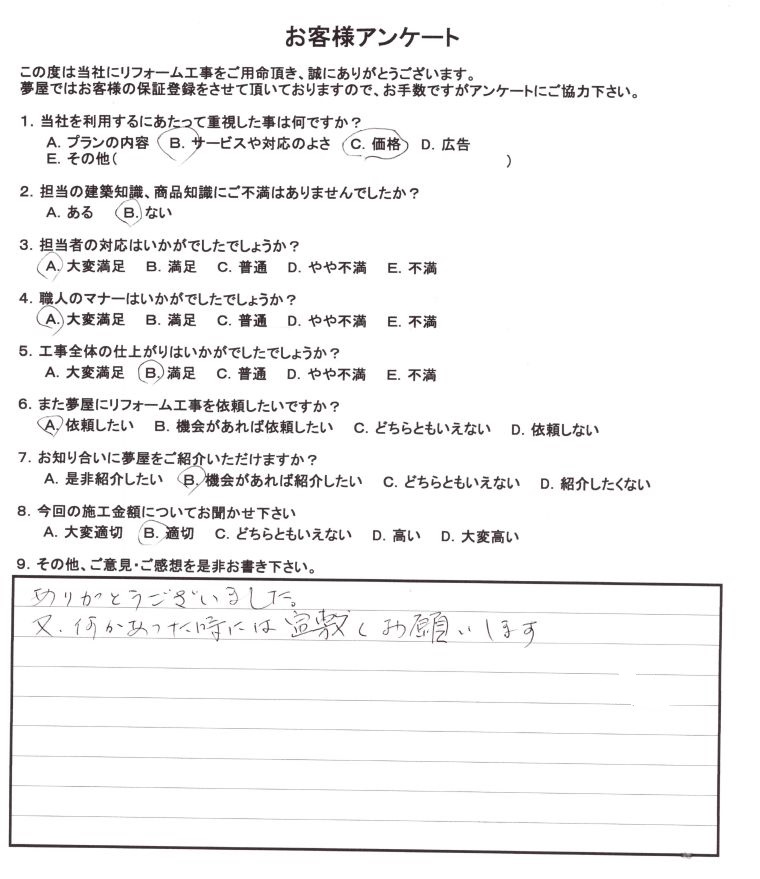 お客様アンケート
この度は当社にリフォーム工事をご用命頂き、誠にありがとうございます。
夢屋ではお客様の保証登録をさせて頂いておりますので、お手数ですがアンケートにご協力下さい。
1. 当社を利用するにあたって重視した事は何ですか？
A. プランの内容 B. サービスや対応のよさ C. 価格 D. 広告
E. その他( )
2. 担当の建築知識、商品知識にご不満はありませんでしたか？
A. ある B. ない
3. 担当者の対応はいかがでしたでしょうか？
A. 大変満足 B. 満足 C. 普通 D. やや不満 E. 不満
4. 職人のマナーはいかがでしたでしょうか？
A. 大変満足 B. 満足 C. 普通 D. やや不満 E. 不満
5. 工事全体の仕上がりはいかがでしたでしょうか？
A. 大変満足 B. 満足 C. 普通 D. やや不満 E. 不満
6. また夢屋にリフォーム工事を依頼したいですか？
A. 依頼したい B. 機会があれば依頼したい C. どちらともいえない D. 依頼しない
7. お知り合いに夢屋をご紹介いただけますか？
A. 是非紹介したい B. 機会があれば紹介したい C. どちらともいえない D. 紹介したくない
8. 今回の施工金額についてお聞かせ下さい
A. 大変適切 B. 適切 C. どちらともいえない D. 高い D. 大変高い
9. その他、ご意見・ご感想を是非お書き下さい。
ありがとうございました。
又、何かあった時には宜敷くお願いします